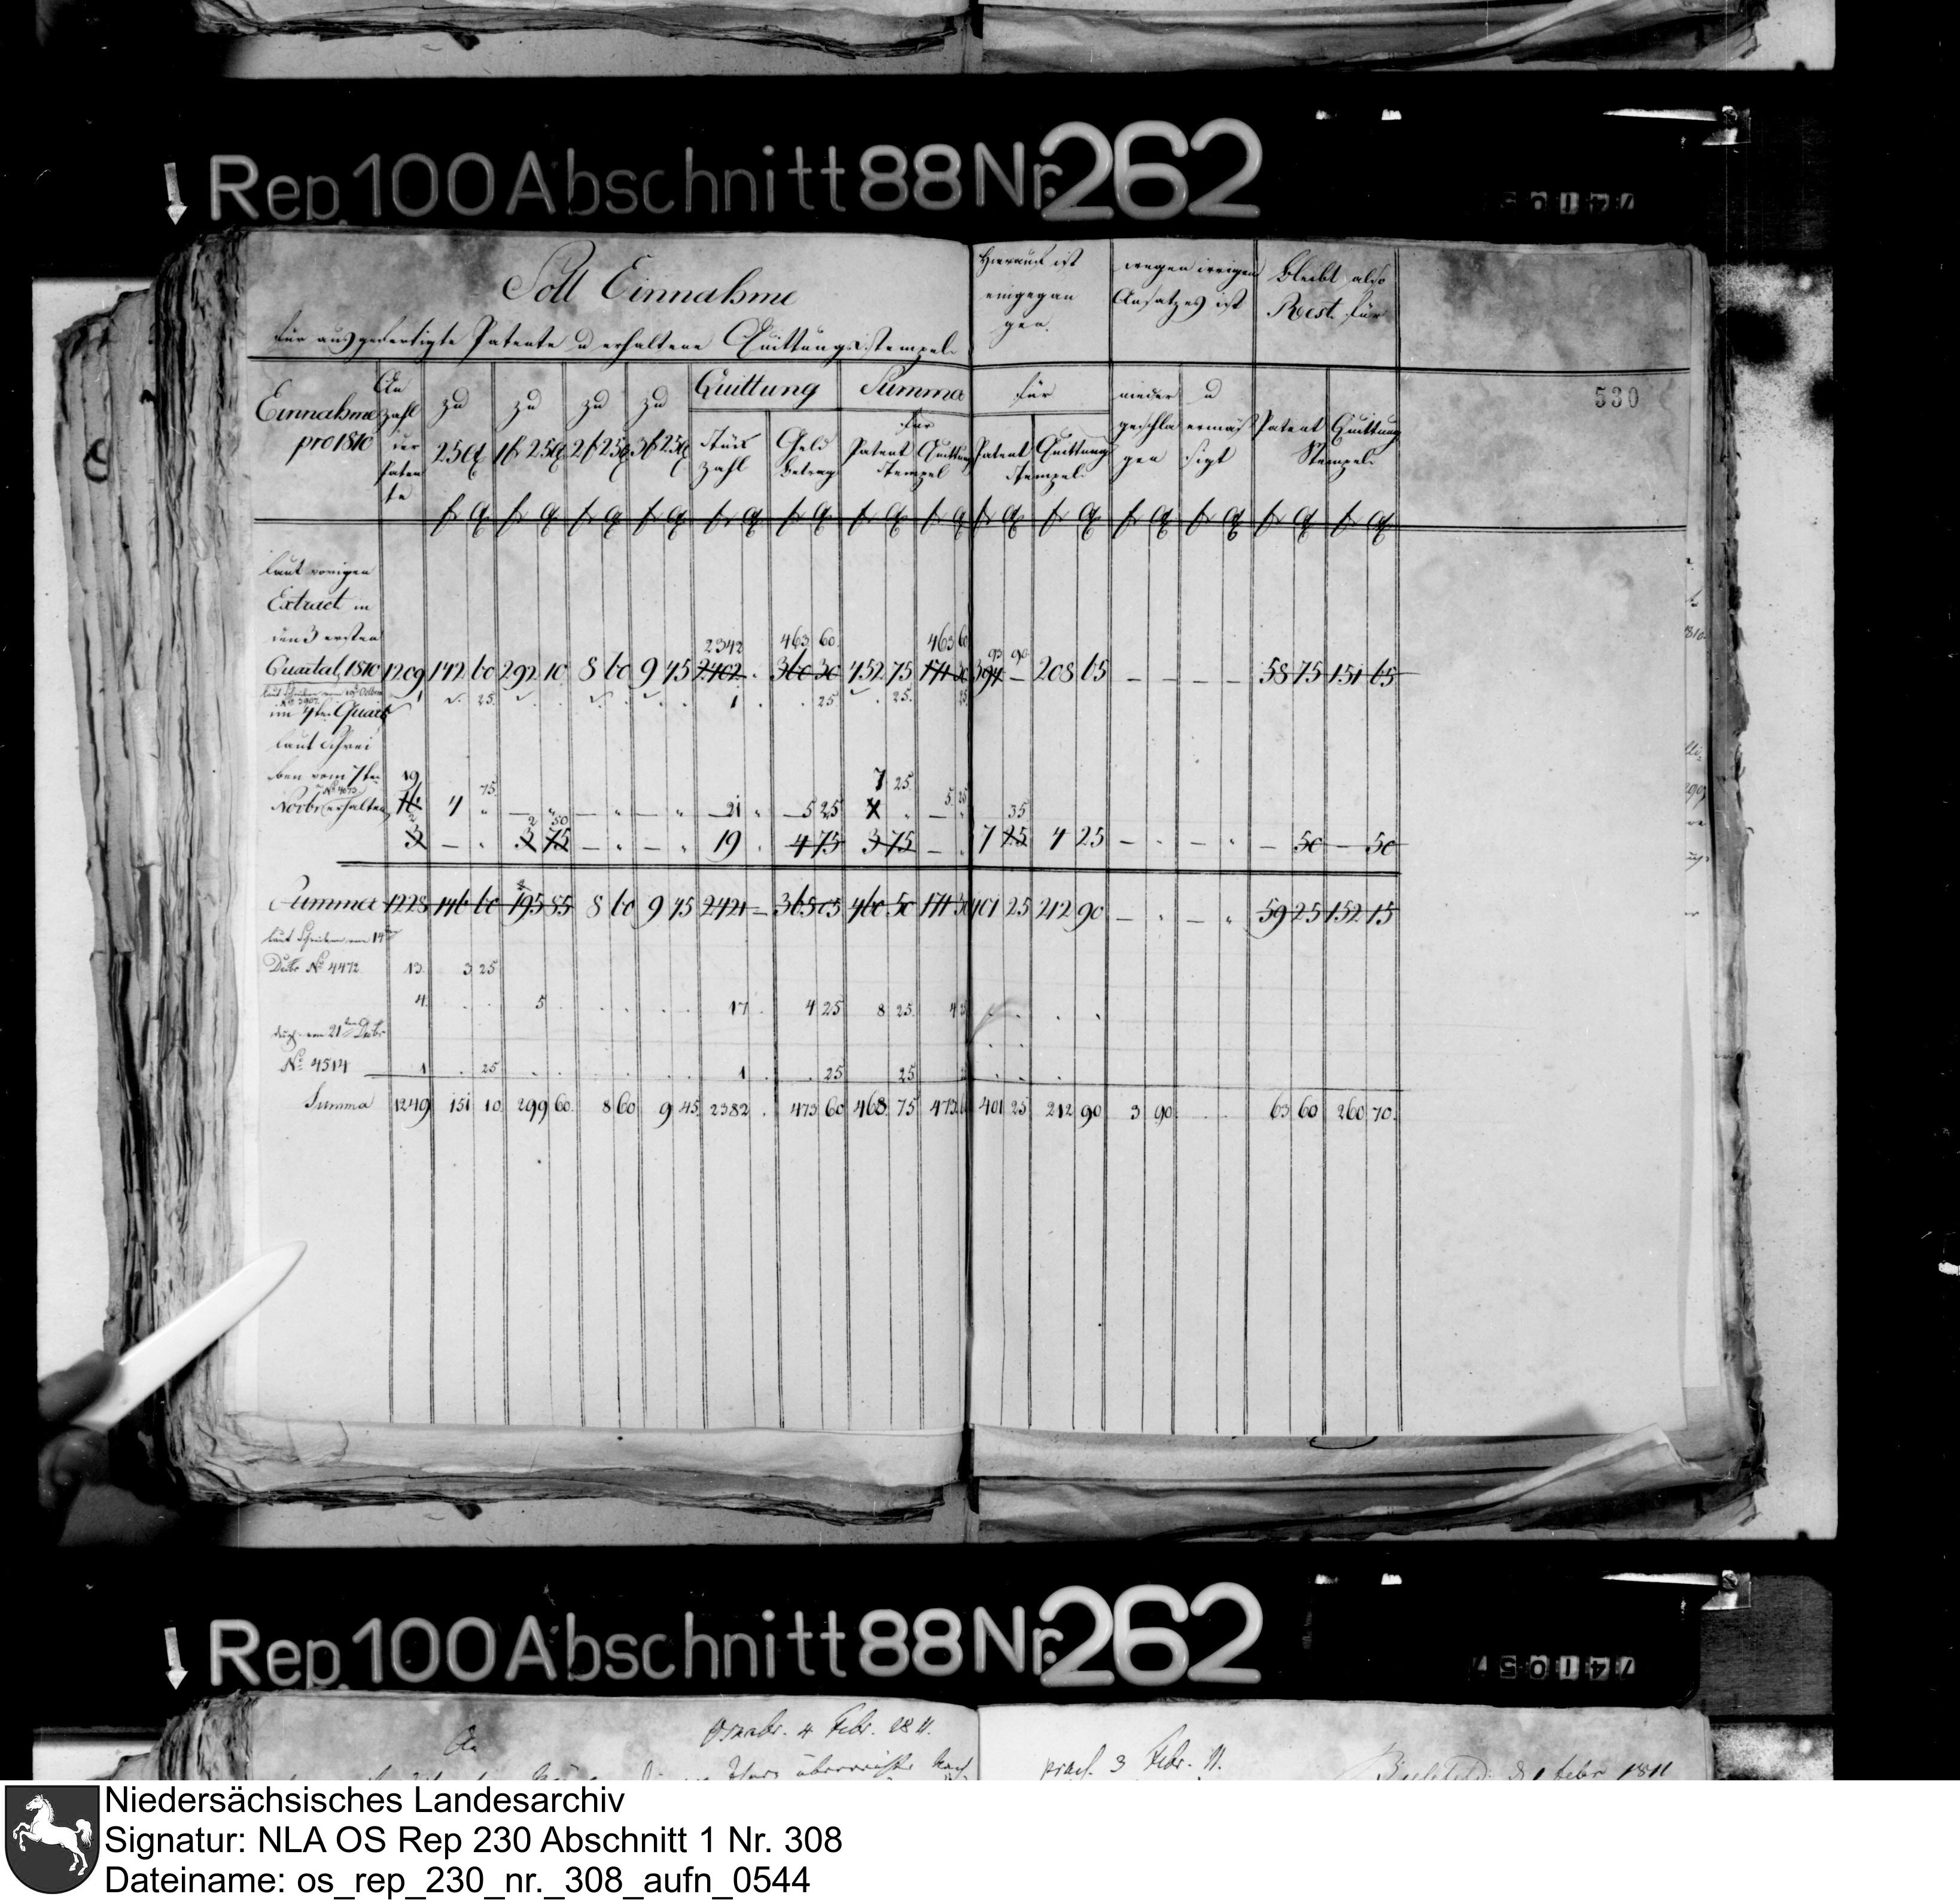 Rep. 100 Abschnitt 88 Nr. 262
Soll Einnahme
für ausgefertigte Patente u erhaltene Quittungsstempel
Hierauf ist eingegangen
wegen irrigen Ansatzes ist
bleibt also Rest für
530
Einnahme pro 1810
Anzahl der Patente
zu 25 ct
zu 1 fr 25 ct
zu 2 fr 25 ct
zu 3 fr 25 ct
Quittung
Stückzahl
Geld Betrag
Summa
für
Patent Quittung
Stempel
für
Patent Quittung
Stempel
niedergeschlagen
u ermäßigt
Patent Quittung
Stempel
laut vorigen
Extract in
den 3 ersten
2342 463 60 463 60 93 90
Quartal 1810 1209 142 60 292 10 8 60 9 45 2402 360 30 452 75 171 30 394 – 208 65 – – – – 58 75 151 65
1 25 1 25 25 25
im 4ten Quart
laut Schreiben vom 7ten
No 4073
19 75 7 25
Novbr erhalten 16 4 21 5 25 4 5 25
2 2 50 35
3 3 75 19 4 75 3 75 7 25 4 25 50 50
Summa 1228 146 60 195 85 8 60 9 45 2421 – 365 05 460 50 171 30 401 25 212 90 59 25 152 15
laut Schreiben vom 14ten
Decbr No 4472 13 3 25
4 5 17 4 25 8 25 4 25
vom 21ten Decbr
No 4514 1 25 1 25 25
Summa 1249 151 10 299 60 8 60 9 45 2382 473 60 468 75 473 60 401 25 212 90 3 90 63 60 260 70
Rep. 100 Abschnitt 88 Nr. 262
74105
Osnabr. 4 Febr. 1811.
praes. 3 Febr. 11.
Febr 1811
Niedersächsisches Landesarchiv
Signatur: NLA OS Rep 230 Abschnitt 1 Nr. 308
Dateiname: os_rep_230_nr._308_aufn_0544